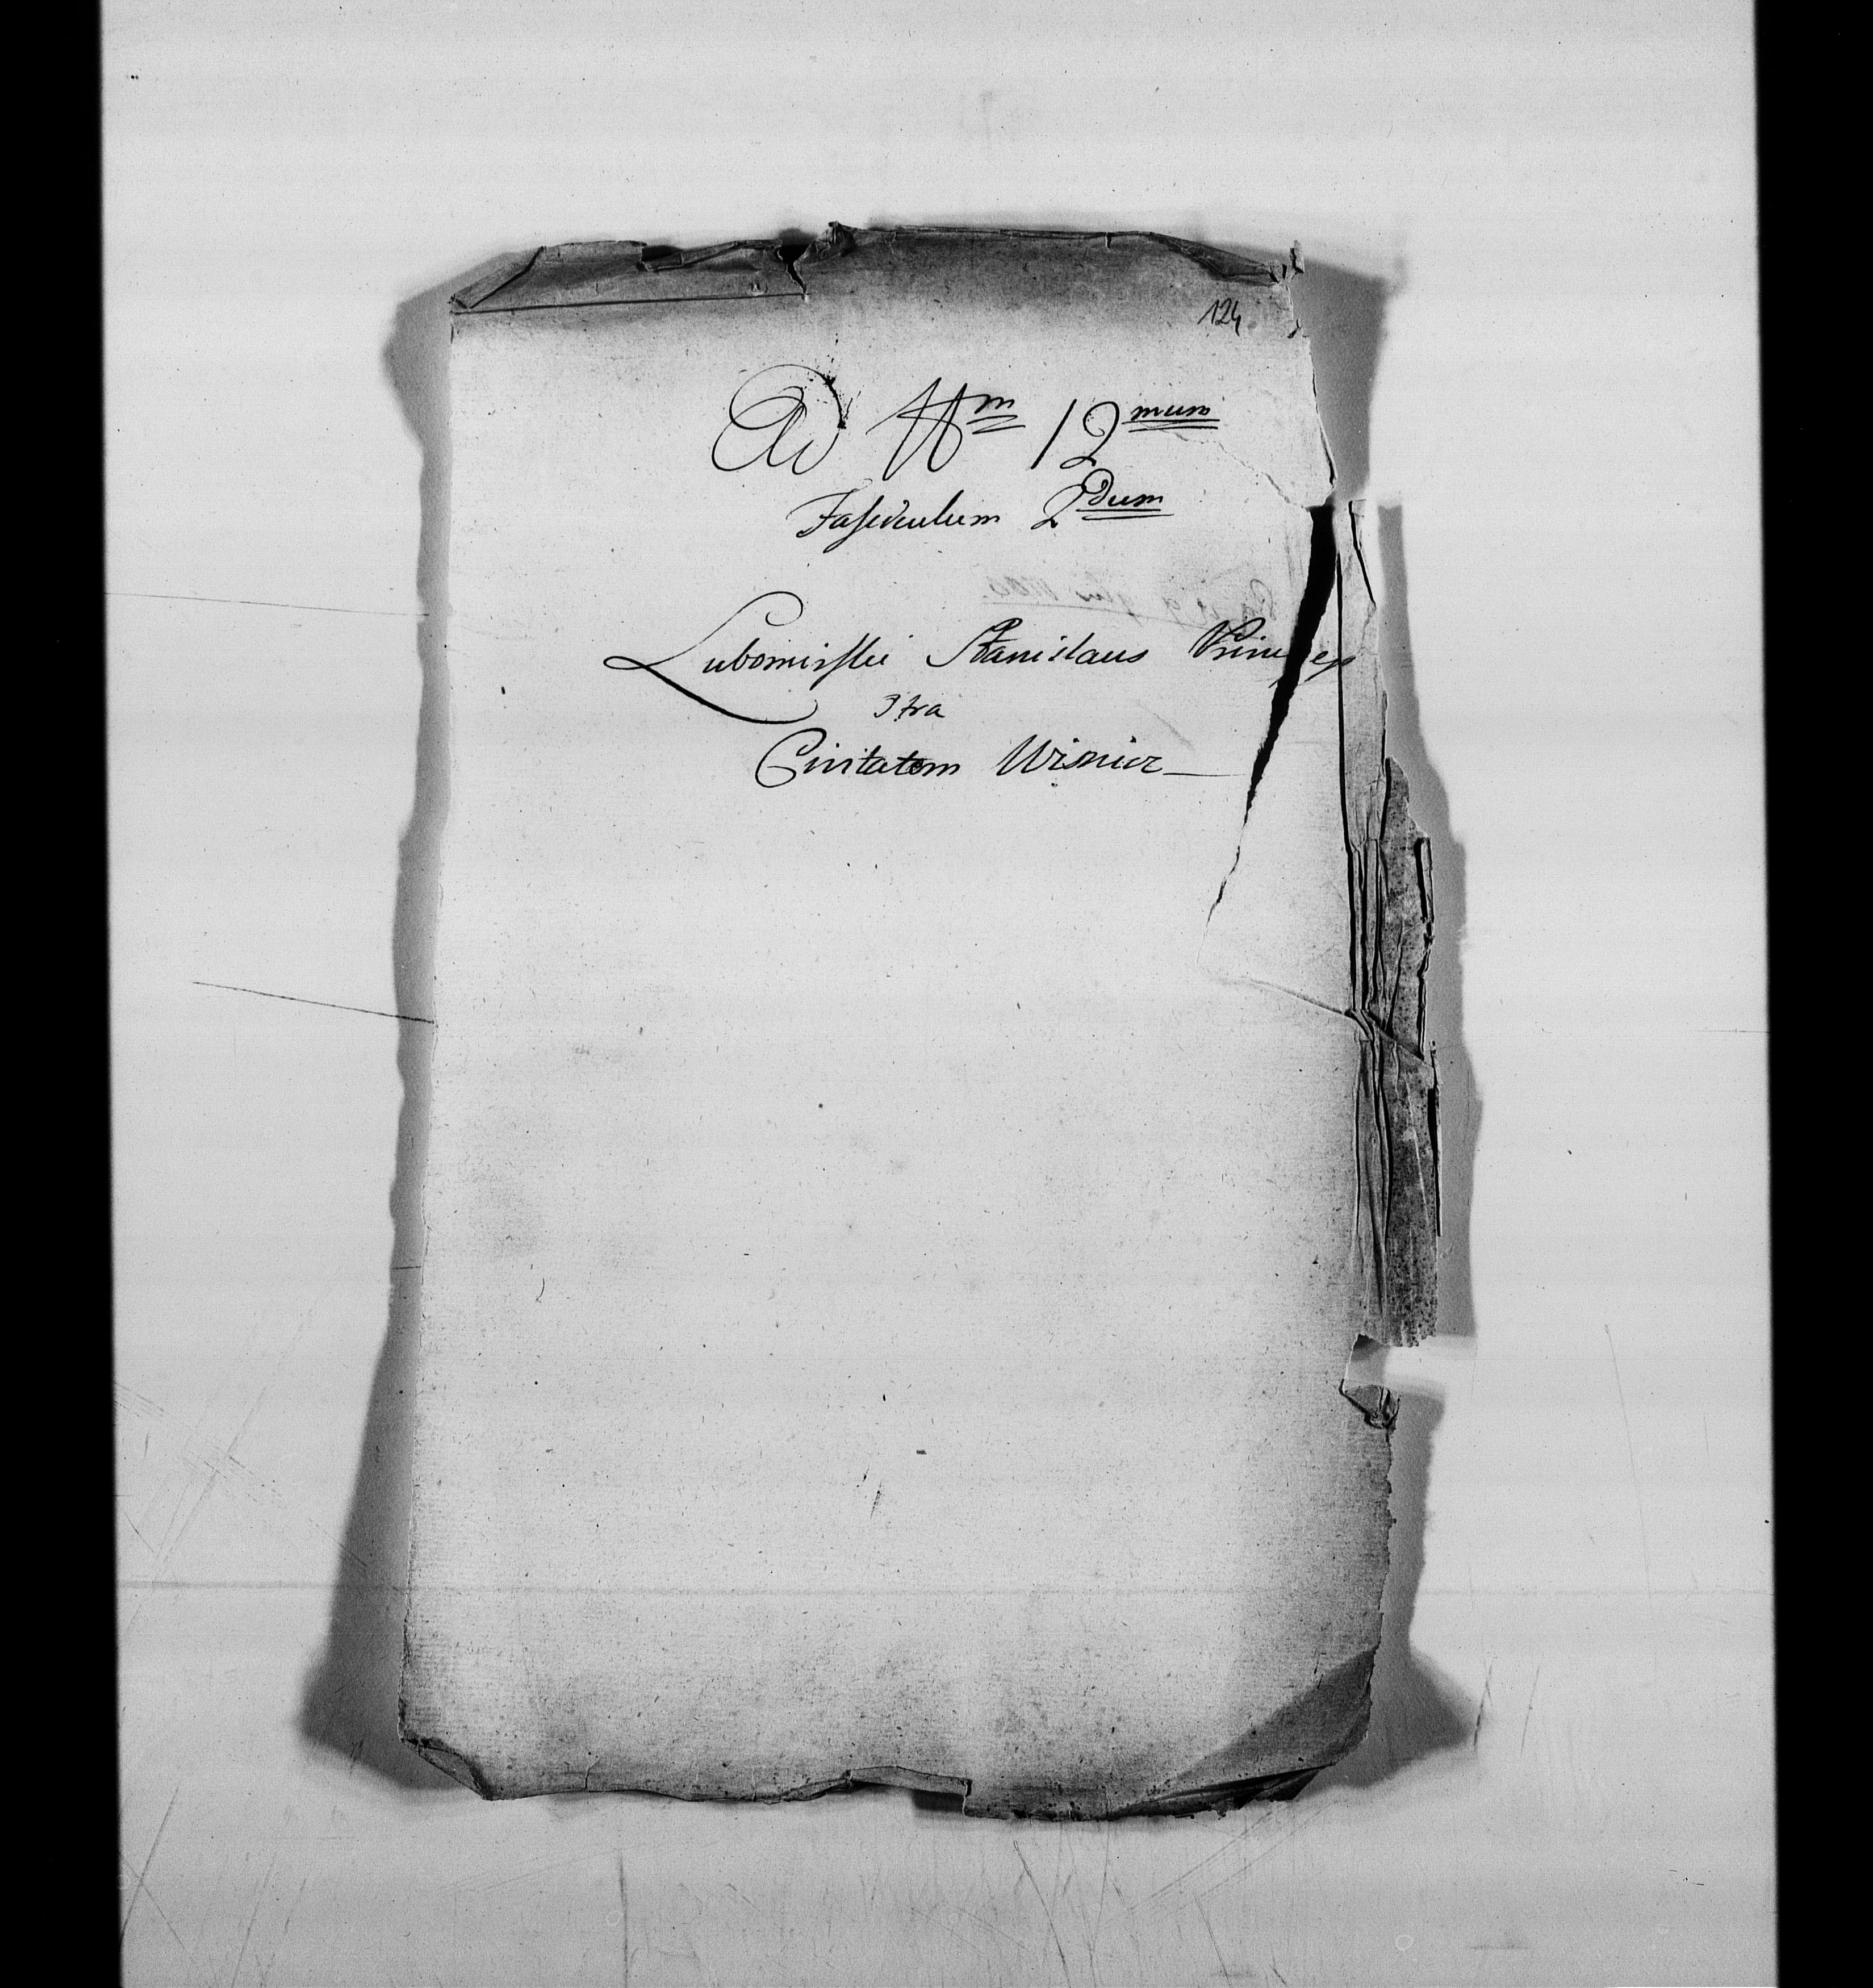 124
Ad Nm 12mum
Fasciculum 2dum
Lubomirski Stanislaus Princeps
3tra
Civitatem Wisnicz